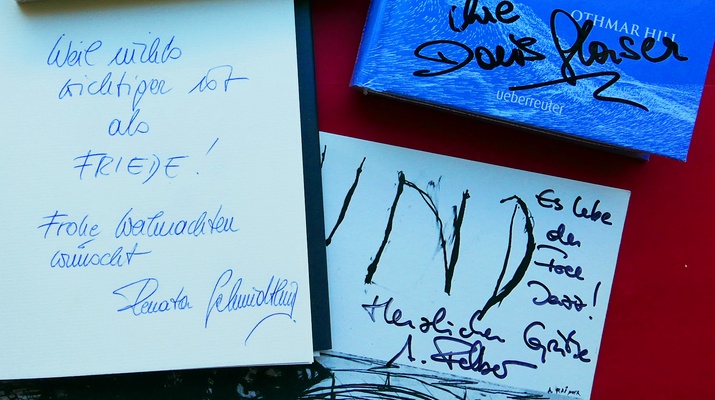 Weil nichts
wichtiger ist
als
FRIEDE!
Frohe Weihnachten
wünscht
Renata Schmidtkunz
ihre
OTHMAR HILL
Doris
ueberreuter
IND
Es lebe
der
Free
Jazz!
Herzliche Grüße
A. Felber